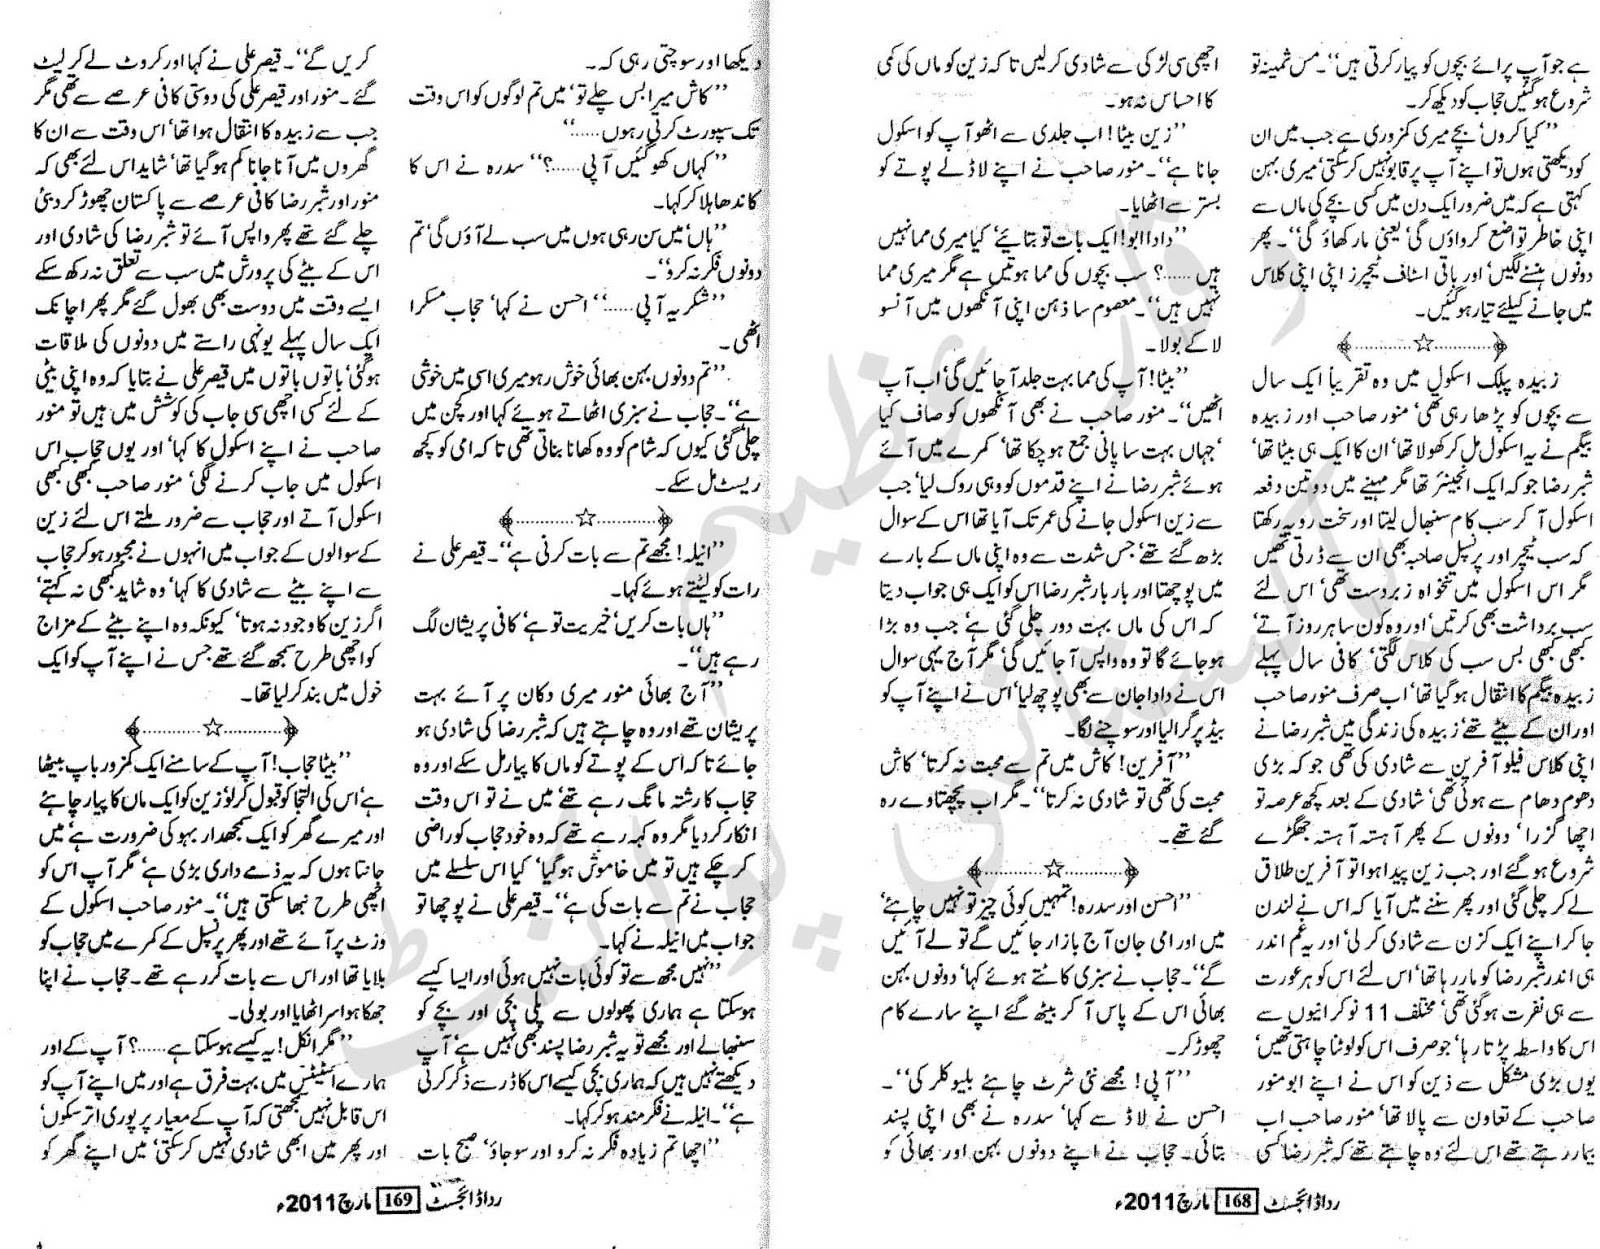 ہے جو آپ پرائے بچوں کو پیار کرتی ہیں‘‘۔ مس ثمینہ تو
شروع ہو گئیں حجاب کو دیکھ کر۔
’’کیا کروں‘ بچے میری کمزوری ہے جب میں ان
کو دیکھتی ہوں تو اپنے آپ پر قابو نہیں کر سکتی‘ میری بہن
کہتی ہے کہ میں ضرور ایک دن میں کسی بچے کی ماں سے
اپنی خاطر تواضع کرواؤں گی‘ یعنی مار کھاؤ گی‘‘۔ پھر
دونوں ہنسنے لگیں‘ اور باقی اسٹاف ٹیچرز اپنی اپنی کلاس
میں جانے کیلئے تیار ہو گئیں۔
زبیدہ پبلک اسکول میں وہ تقریباً ایک سال
سے بچوں کو پڑھا رہی تھی‘ منور صاحب اور زبیدہ
بیگم نے یہ اسکول مل کر کھولا تھا‘ ان کا ایک ہی بیٹا تھا‘
شبر رضا جو کہ ایک انجینئر تھا مگر مہینے میں دو تین دفعہ
اسکول آ کر سب کام سنبھال لیتا اور سخت رویہ رکھتا
کہ سب ٹیچر اور پرنسپل صاحبہ بھی ان سے ڈرتی تھیں
مگر اس اسکول میں تنخواہ زبردست تھی‘ اس لئے
سب برداشت بھی کرتیں‘ اور وہ کون سا ہر روز آتے‘
کبھی کبھی بس سب کی کلاس لگتی‘ کافی سال پہلے
زبیدہ بیگم کا انتقال ہو گیا تھا‘ اب صرف منور صاحب
اور ان کے بیٹے تھے‘ زبیدہ کی زندگی میں شبر رضا نے
اپنی کلاس فیلو آفرین سے شادی کی تھی جو کہ بڑی
دھوم دھام سے ہوئی تھی‘ شادی کے بعد کچھ عرصہ تو
اچھا گزرا‘ دونوں کے پھر آہستہ آہستہ جھگڑے
شروع ہو گئے اور جب زین پیدا ہوا تو آفرین طلاق
لے کر چلی گئی اور پھر سننے میں آیا کہ اس نے لندن
جا کر اپنے ایک کزن سے شادی کر لی‘ اور یہ غم اندر
ہی اندر شبر رضا کو مار رہا تھا‘ اس لئے اس کو ہر عورت
سے ہی نفرت ہو گئی تھی‘ مختلف 11 نوکرانیوں سے
اس کا واسطہ پڑتا رہا‘ جو صرف اس کو لوٹنا چاہتی تھیں‘
یوں بڑی مشکل سے زین کو اس نے اپنے ابو منور
صاحب کے تعاون سے پالا تھا‘ منور صاحب اب
بیمار رہتے تھے اس لئے وہ چاہتے تھے کہ شبر رضا کسی
اچھی سی لڑکی سے شادی کر لیں تاکہ زین کو ماں کی کمی
کا احساس نہ ہو۔
’’زین بیٹا! اب جلدی سے اٹھو آپ کو اسکول
جانا ہے‘‘۔ منور صاحب نے اپنے لاڈلے پوتے کو
بستر سے اٹھایا۔
’’دادا ابو! ایک بات تو بتائیے‘ کیا میری مما نہیں
ہیں......؟ سب بچوں کی مما ہوتیں ہے مگر میری مما
نہیں ہیں‘‘۔ معصوم سا ذہن اپنی آنکھوں میں آنسو
لا کے بولا۔
’’بیٹا! آپ کی مما بہت جلد آ جائیں گی‘ اب آپ
اٹھیں‘‘۔ منور صاحب نے بھی آنکھوں کو صاف کیا
‘جہاں بہت سا پانی جمع ہو چکا تھا‘ کمرے میں آئے
ہوئے شبر رضا نے اپنے قدموں کو وہی روک لیا‘ جب
سے زین اسکول جانے کی عمر تک آیا تھا اس کے سوال
بڑھ گئے تھے‘ جس شدت سے وہ اپنی ماں کے بارے
میں پوچھتا اور بار بار شبر رضا اس کو ایک ہی جواب دیتا
کہ اس کی ماں بہت دور چلی گئی ہے‘ جب وہ بڑا
ہو جائے گا تو وہ واپس آ جائیں گی‘ مگر آج یہی سوال
اس نے دادا جان سے بھی پوچھ لیا‘ اس نے اپنے آپ کو
بیڈ پر گرا لیا اور سوچنے لگا۔
’’آفرین! کاش میں تم سے محبت نہ کرتا‘ کاش
محبت کی تھی تو شادی نہ کرتا‘‘۔ مگر اب پچھتاوے رہ
گئے تھے۔
’’احسن اور سدرہ! تمہیں کوئی چیز تو نہیں چاہئے‘
میں اور امی جان آج بازار جائیں گے تو لے آئیں
گے‘‘۔ حجاب نے سبزی کاٹتے ہوئے کہا‘ دونوں بہن
بھائی اس کے پاس آ کر بیٹھ گئے اپنے سارے کام
چھوڑ کر۔
’’آپی! مجھے نئی شرٹ چاہئے بلیو کلر کی‘‘۔
احسن نے لاڈ سے کہا‘ سدرہ نے بھی اپنی پسند
بتائی۔ حجاب نے اپنے دونوں بہن اور بھائی کو
رداڈائجسٹ 168 مارچ 2011ء
دیکھا اور سوچتی رہی کہ۔
’’کاش میرا بس چلے تو‘ میں تم لوگوں کو اس وقت
تک سپورٹ کرتی رہوں......‘‘
’’کہاں کھو گئیں آپی......؟‘‘ سدرہ نے اس کا
کاندھا ہلا کر کہا۔
’’ہاں‘ میں سن رہی ہوں میں سب لے آؤں گی‘ تم
دونوں فکر نہ کرو‘‘۔
’’شکریہ آپی......‘‘ احسن نے کہا‘ حجاب مسکرا
اٹھی۔
’’تم دونوں بہن بھائی خوش رہو میری اسی میں خوشی
ہے‘‘۔ حجاب نے سبزی اٹھاتے ہوئے کہا اور کچن میں
چلی گئی کیوں کہ شام کو وہ کھانا بناتی تھی تاکہ امی کو کچھ
ریسٹ مل سکے۔
’’انیلہ! مجھے تم سے بات کرنی ہے‘‘۔ قیصر علی نے
رات کو لیٹتے ہوئے کہا۔
’’ہاں بات کریں‘ خیریت تو ہے‘ کافی پریشان لگ
رہے ہیں‘‘۔
’’آج بھائی منور میری دکان پر آئے بہت
پریشان تھے اور وہ چاہتے ہیں کہ شبر رضا کی شادی ہو
جائے تاکہ اس کے پوتے کو ماں کا پیار مل سکے اور وہ
حجاب کا رشتہ مانگ رہے تھے‘ میں نے تو اس وقت
انکار کر دیا مگر وہ کہہ رہے تھے کہ وہ خود حجاب کو راضی
کر چکے ہیں تو میں خاموش ہو گیا‘ کیا اس سلسلے میں
حجاب نے تم سے بات کی ہے‘‘۔ قیصر علی نے پوچھا تو
جواب میں انیلہ نے کہا۔
’’نہیں مجھ سے تو کوئی بات نہیں ہوئی اور ایسا کیسے
ہو سکتا ہے ہماری پھولوں سے پلی بچی اور بچے کو
سنبھالے اور مجھے تو یہ شبر رضا پسند بھی نہیں ہے‘ آپ
دیکھتے نہیں ہیں کہ ہماری بچی کیسے اس کا ڈر سے ذکر کرتی
ہے‘‘۔ انیلہ نے فکر مند ہو کر کہا۔
’’اچھا تم زیادہ فکر نہ کرو اور سو جاؤ‘ صبح بات
کریں گے‘‘۔ قیصر علی نے کہا اور کروٹ لے کر لیٹ
گئے۔ منور اور قیصر علی کی دوستی کافی عرصے سے تھی مگر
جب سے زبیدہ کا انتقال ہوا تھا‘ اس وقت سے ان کا
گھروں میں آنا جانا کم ہو گیا تھا‘ شاید اس لئے بھی کہ
منور اور شبر رضا کافی عرصے سے پاکستان چھوڑ کر دبئی
چلے گئے تھے پھر واپس آئے تو شبر رضا کی شادی اور
اس کے بیٹے کی پرورش میں سب سے تعلق نہ رکھ سکے
ایسے وقت میں دوست بھی بھول گئے مگر پھر اچانک
ایک سال پہلے یونہی راستے میں دونوں کی ملاقات
ہو گئی‘ باتوں باتوں میں قیصر علی نے بتایا کہ وہ اپنی بیٹی
کے لئے کسی اچھی سی جاب کی کوشش میں ہیں تو منور
صاحب نے اپنے اسکول کا کہا‘ اور یوں حجاب اس
اسکول میں جاب کرنے لگی‘ منور صاحب کبھی کبھی
اسکول آتے اور حجاب سے ضرور ملتے اس لئے زین
کے سوالوں کے جواب میں انہوں نے مجبور ہو کر حجاب
سے اپنے بیٹے سے شادی کا کہا‘ وہ شاید کبھی نہ کہتے‘
اگر زین کا وجود نہ ہوتا‘ کیونکہ وہ اپنے بیٹے کے مزاج
کو اچھی طرح سمجھ گئے تھے جس نے اپنے آپ کو ایک
خول میں بند کر لیا تھا۔
’’بیٹا حجاب! آپ کے سامنے ایک کمزور باپ بیٹھا
ہے‘ اس کی التجا کو قبول کر لو‘ زین کو ایک ماں کا پیار چاہئے
اور میرے گھر کو ایک سمجھدار بہو کی ضرورت ہے‘ میں
جانتا ہوں کہ یہ ذمے داری بڑی ہے‘ مگر آپ اس کو
اچھی طرح نبھا سکتی ہیں‘‘۔ منور صاحب اسکول کے
وزٹ پر آئے تھے اور پھر پرنسپل کے کمرے میں حجاب کو
بلایا تھا اور اس سے بات کر رہے تھے۔ حجاب نے اپنا
جھکا ہوا سر اٹھایا اور بولی۔
’’مگر انکل! یہ کیسے ہو سکتا ہے......؟ آپ کے اور
ہمارے اسٹیٹس میں بہت فرق ہے اور میں اپنے آپ کو
اس قابل نہیں سمجھتی کہ آپ کے معیار پر پوری اتر سکوں‘
اور پھر میں ابھی شادی نہیں کر سکتی‘ میں اپنے گھر کو
رداڈائجسٹ 169 مارچ 2011ء
وقار عظیم
پاکستانی پوائنٹ